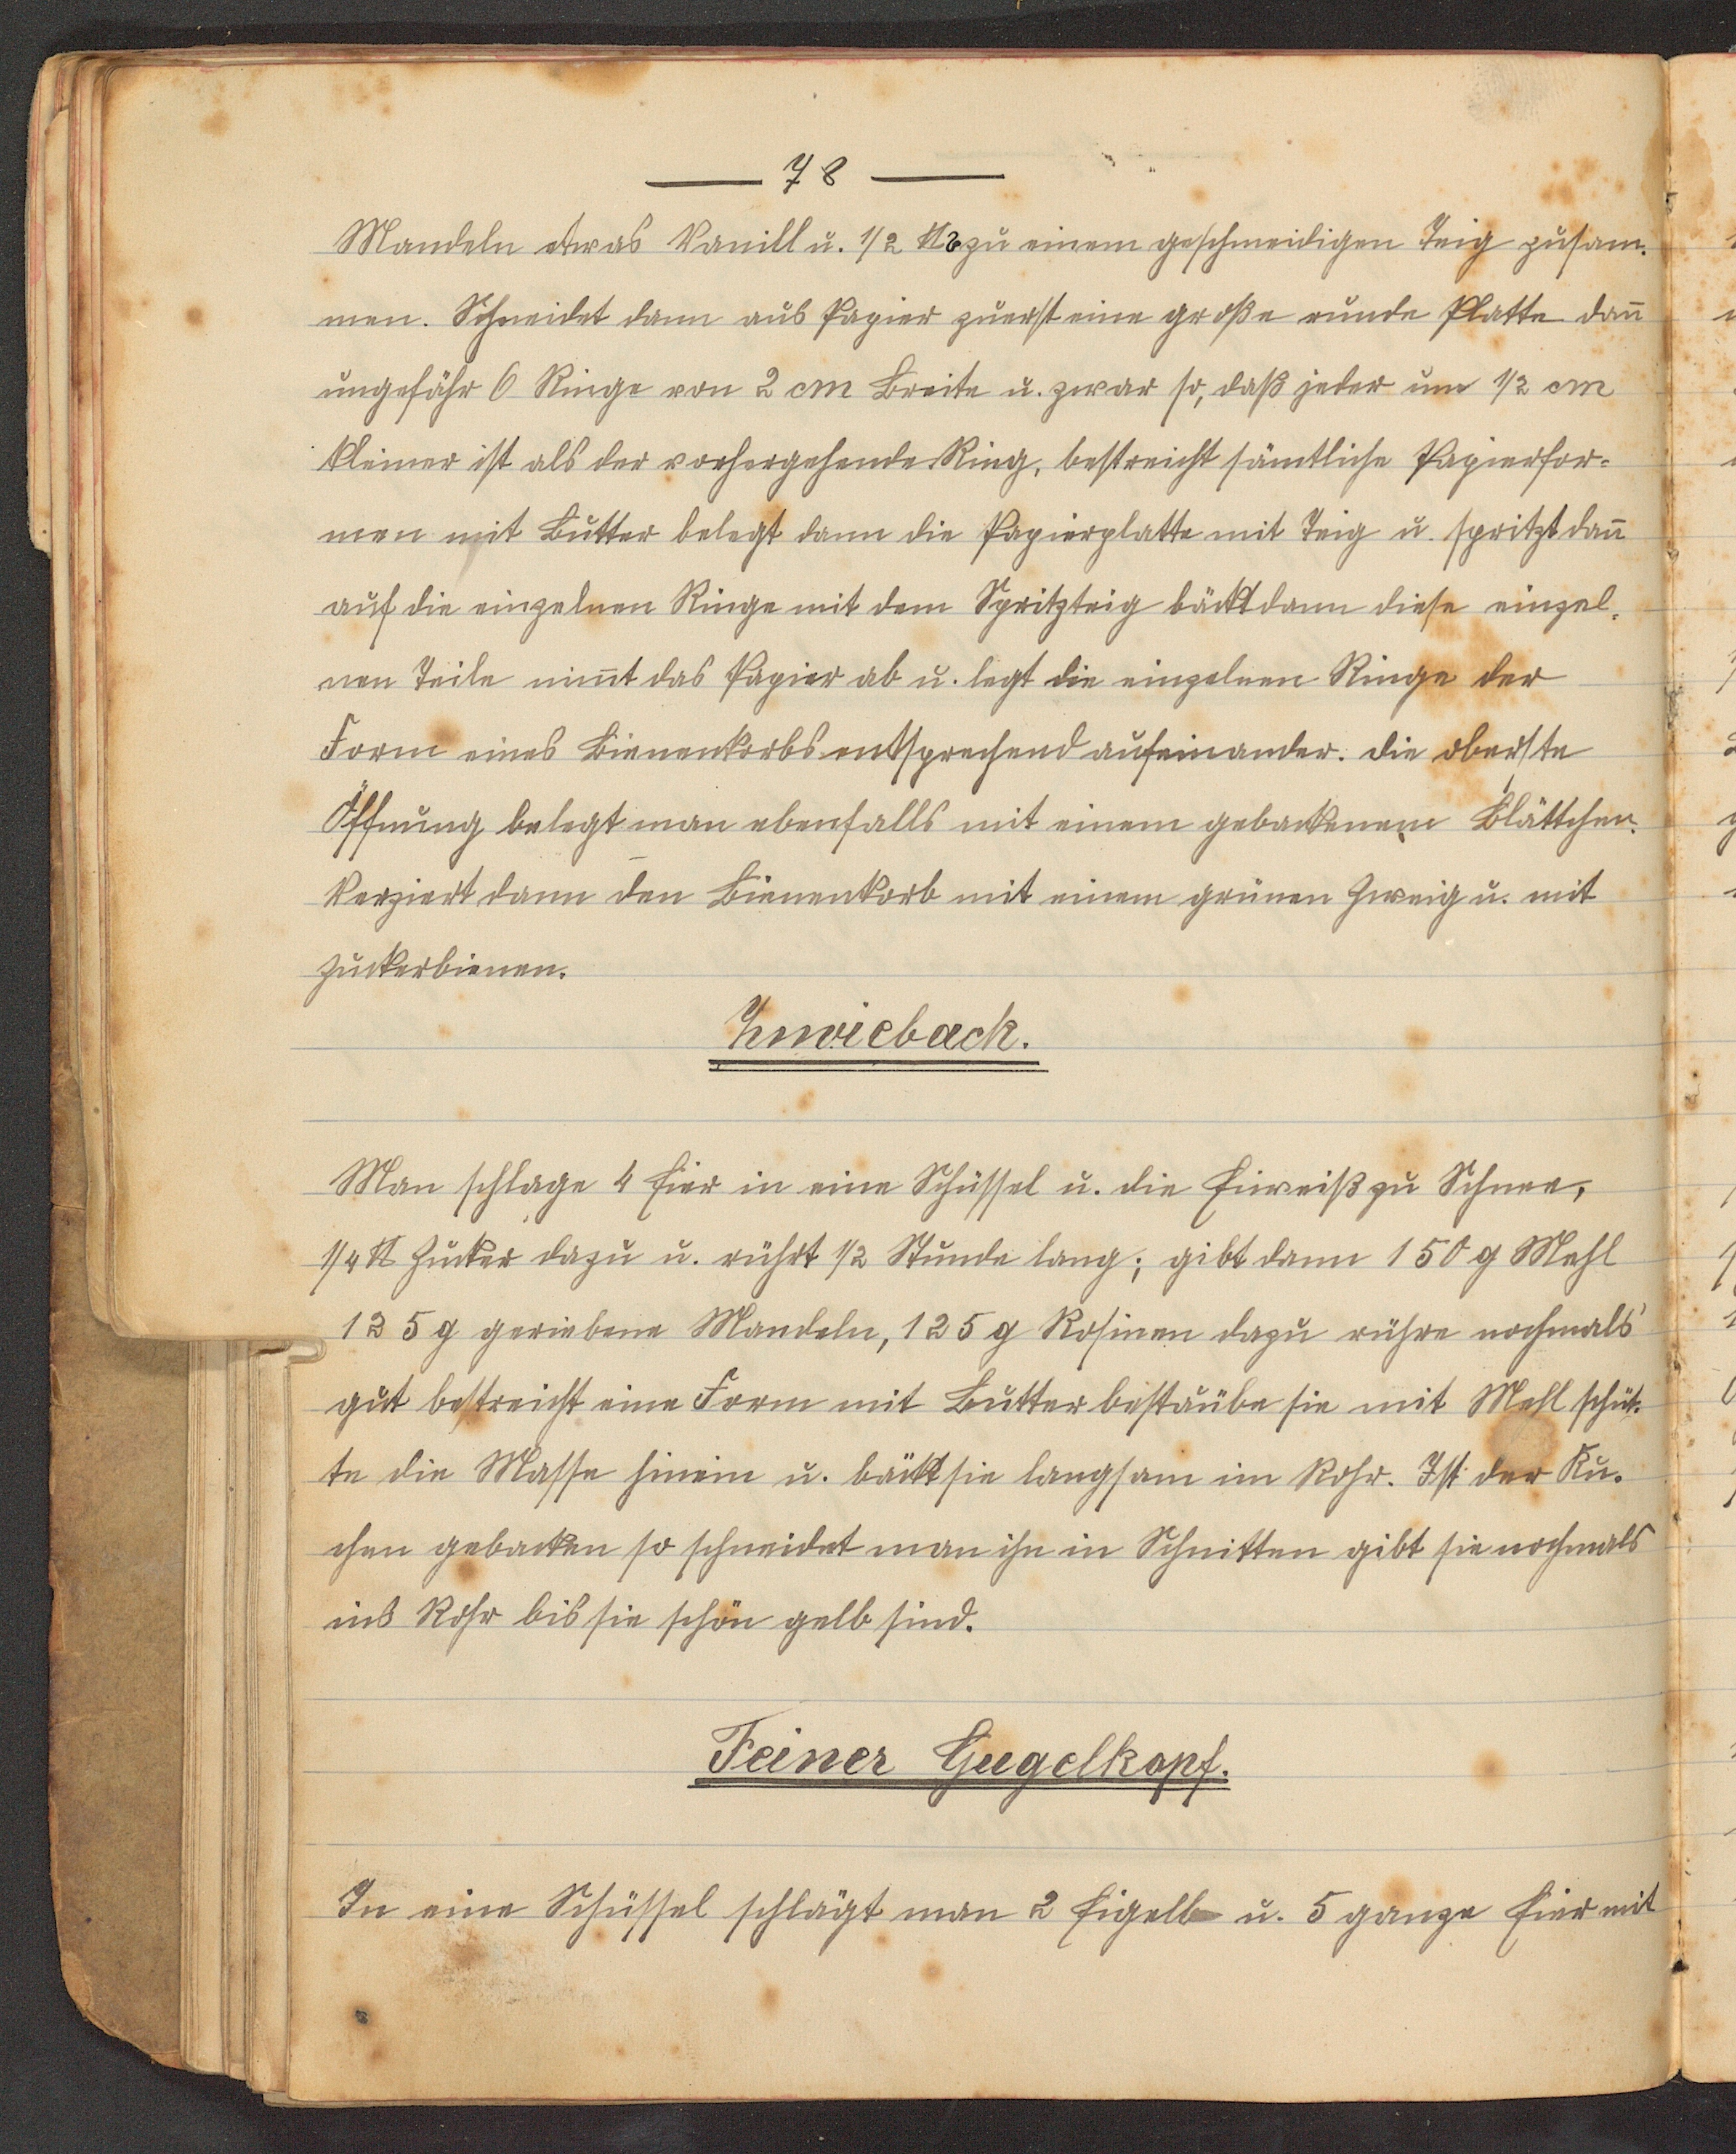 — 78 —
Mandeln etwas Vanill u. 1/2 ℔ zu einem geschmeidigen Teig zusam-
men. Schneidet dann aus Papier zuerst eine große runde Platte dan̄
ungefähr 6 Ringe von 2 cm Breite u. zwar so, daß jeder um 1/2 cm
kleiner ist als der vorhergehende Ring, bestreicht sämtliche Papierfor-
men mit Butter belegt dann die Papierplatte mit Teig u. spritzt dan̄
auf die einzelnen Ringe mit dem Spritzteig bäckt dann diese einzel-
nen Teile nim̄t das Papier ab u. legt die einzelnen Ringe der
Form eines Bienenkorbs entsprechend aufeinander. die oberste
Öffnung belegt man ebenfalls mit einem gebackenem Blättchen.
Verziert dann den Bienenkorb mit einem grünen Zweig u. mit
Zuckerbienen.
Zwieback.
Man schlage 4 Eier in eine Schüssel u. die Eiweiß zu Schnee,
1/4 ℔ Zucker dazu u. rührt 1/2 Stunde lang; gibt dann 150 g Mehl
125 g geriebene Mandeln, 125 g Rosinen dazu rühre nochmals
gut bestreicht eine Form mit Butter bestäube sie mit Mehl schüt-
te die Masse hinein u. bäckt sie langsam im Rohr. Ist der Ku-
chen gebacken so schneidet man ihn in Schnitten gibt sie nochmals
ins Rohr bis sie schön gelb sind.
Feiner Gugelkopf.
In eine Schüssel schlägt man 2 Eigelb u. 5 ganze Eier mit